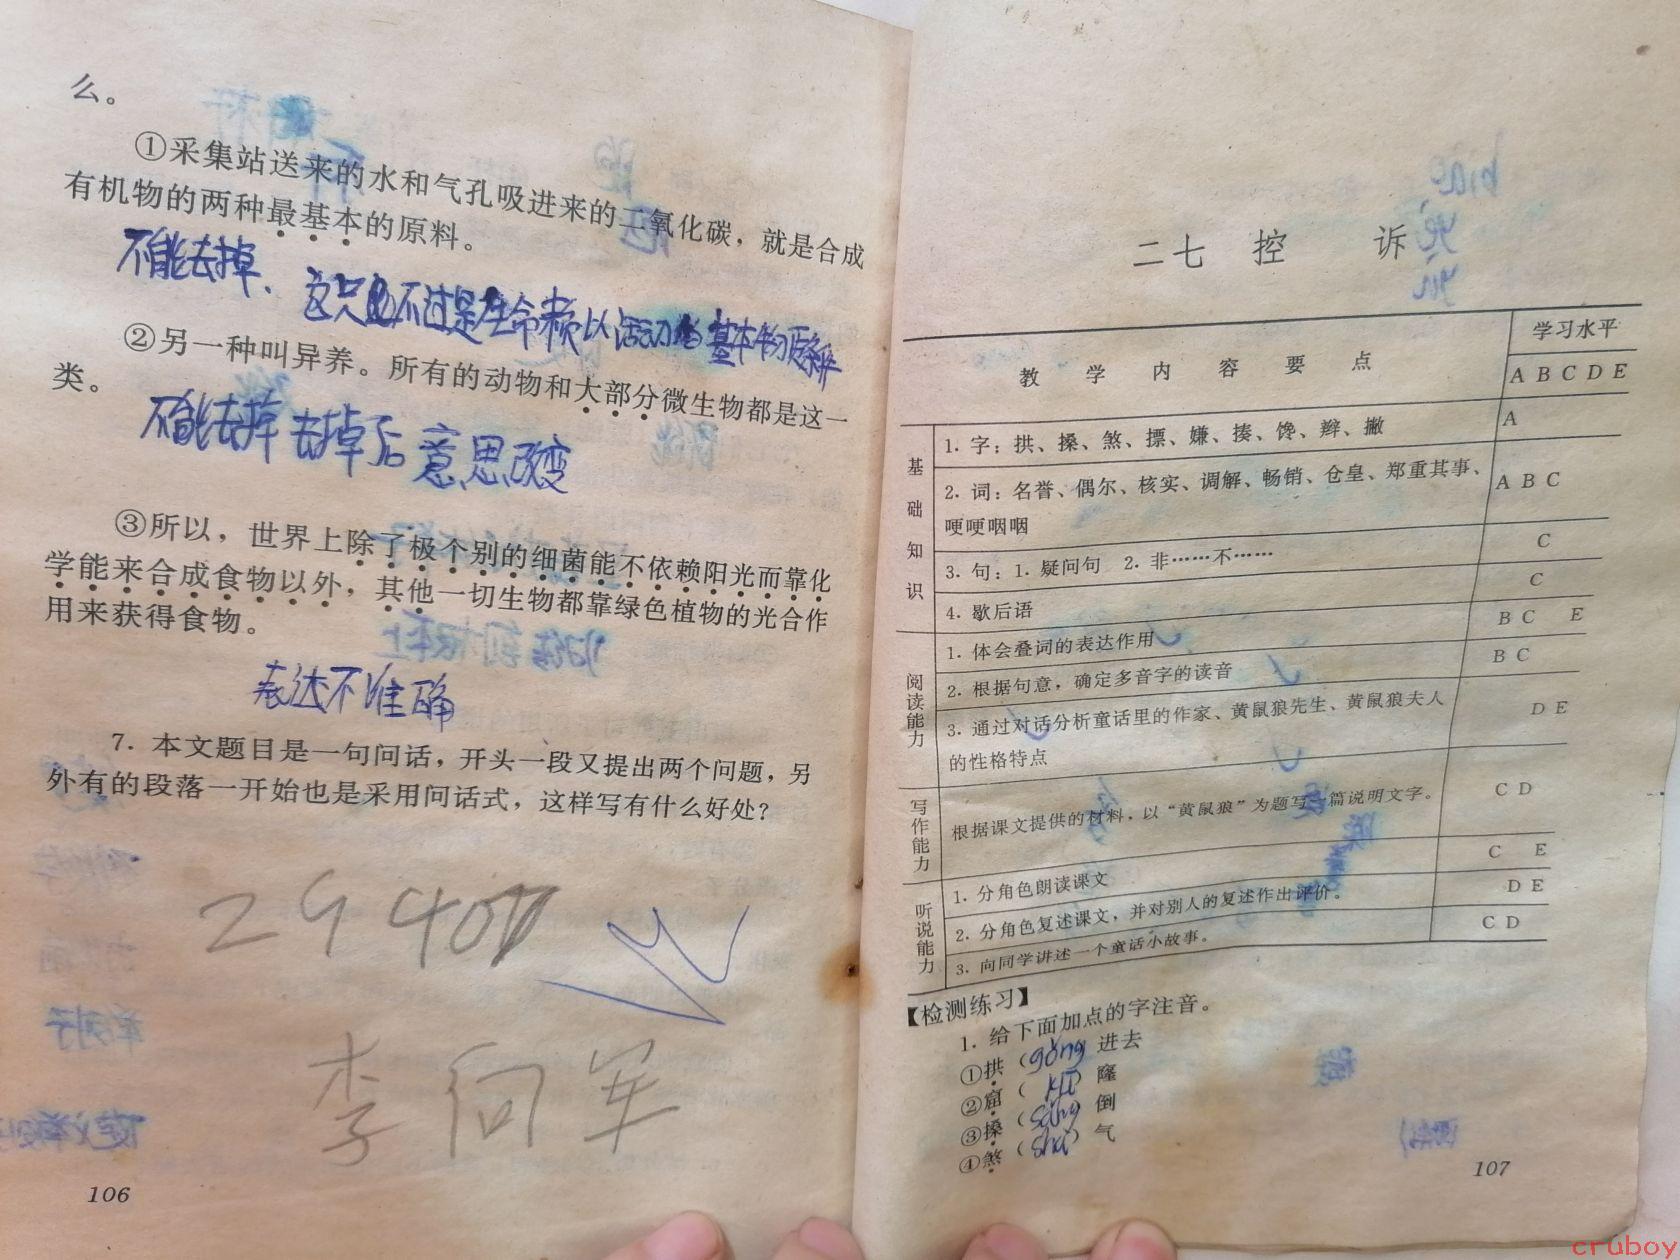 么。
①采集站送来的水和气孔吸进来的二氧化碳，就是合成
有机物的两种最基本的原料。
不能去掉、这只也不过是生命赖以活动的基本物质条件
②另一种叫异养。所有的动物和大部分微生物都是这一
类。
不能去掉 去掉后意思改变
③所以，世界上除了极个别的细菌能不依赖阳光而靠化
学能来合成食物以外，其他一切生物都靠绿色植物的光合作
用来获得食物。
表达不准确
7. 本文题目是一句问话，开头一段又提出两个问题，另
外有的段落一开始也是采用问话式，这样写有什么好处？
李向军
106
二七 控 诉
教 学 内 容 要 点
学习水平
A B C D E
基础知识
1. 字：拱、搡、煞、摽、嫌、揍、馋、辫、撇
A
2. 词：名誉、偶尔、核实、调解、畅销、仓皇、郑重其事、
哽哽咽咽
A B C
3. 句：1. 疑问句 2. 非……不……
C
4. 歇后语
C
阅读能力
1. 体会叠词的表达作用
B C E
2. 根据句意，确定多音字的读音
B C
3. 通过对话分析童话里的作家、黄鼠狼先生、黄鼠狼夫人
的性格特点
D E
写作能力
根据课文提供的材料，以“黄鼠狼”为题写一篇说明文字。
C D
听说能力
1. 分角色朗读课文
C E
2. 分角色复述课文，并对别人的复述作出评价。
D E
3. 向同学讲述一个童话小故事。
C D
【检测练习】
1. 给下面加点的字注音。
①拱（gǒng）进去
②窟（kū）窿
③搡（sǎng）倒
④煞（shà）气
107
cruboy